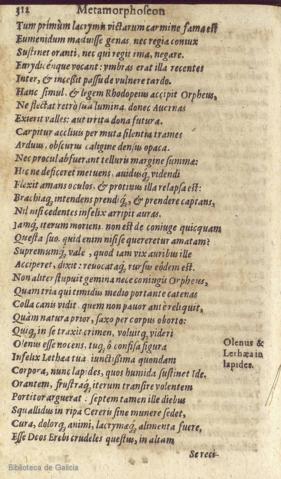 312 Metamorphoseon
Tum primùm lacrymis victarum carmine fama est
Eumenidum maduisse genas. nec regia coniux
Sustinet oranti, nec qui regit ima, negare.
Eurydicénque vocant: vmbras erat illa recentes
Inter, & incessit passu de vulnere tardo.
Hanc simul, & legem Rhodopeius accipit Orpheus,
Ne flectat retrò sua lumina, donec Auernas
Exierit valles: aut irrita dona futura.
Carpitur accliuis per muta silentia trames
Arduus, obscurus caligine densus opaca.
Nec procul abfuerant telluris margine summæ:
Hic ne deficeret metuens, auidusq́, videndi
Flexit amans oculos, & protinus illa relapsa est:
Brachiaq́, intendens prendiq́, & prendere captans,
Nil nisi cedentes infelix arripit auras.
Jamq́, iterum moriens, non est de coniuge quicquam
Questa suo. quid enim nisi se quereretur amatam?
Supremumq́, vale, quod iam vix auribus ille
Acciperet, dixit: reuocataq́, rursus eódem est.
Non aliter stupuit gemina nece coniugis Orpheus,
Quàm tria qui timidus medio portante catenas
Colla canis vidit. quem non pauor antè reliquit,
Quàm natura prior, saxo per corpus oborto:
Quiq́, in se traxit crimen, voluitq́, videri
Olenus esse nocens, tuq́, ô confisa figuræ
Infelix Lethæa tuæ iunctissima quondam
Corpora, nunc lapides, quos humida sustinet Ide.
Orantem, frustraq́, iterum transire volentem
Portitor arguerat: septem tamen ille diebus
Squallidus in ripa Cereris sine munere sedit,
Cura, dolorq́, animi, lacrymæq́, alimenta fuere,
Esse Deos Erebi crudeles questus, in altam
Se reci-
Olenus &
Lethæa in
lapides.
Biblioteca de Galicia